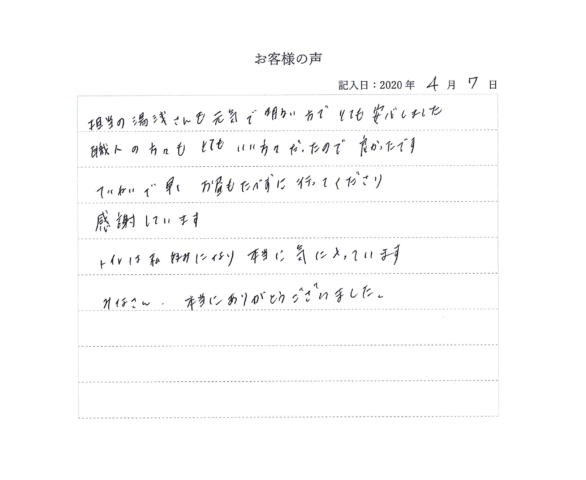 お客様の声
記入日：2020 年 4 月 7 日
担当の湯浅さんも元気で明るい方でとても安心しました
職人の方々もとてもいい方々だったので良かったです
ていねいで早く お昼もたべずに行ってくださり
感謝しています
トイレは私好みになり 本当に気に入っています
さん、本当にありがとうございました。